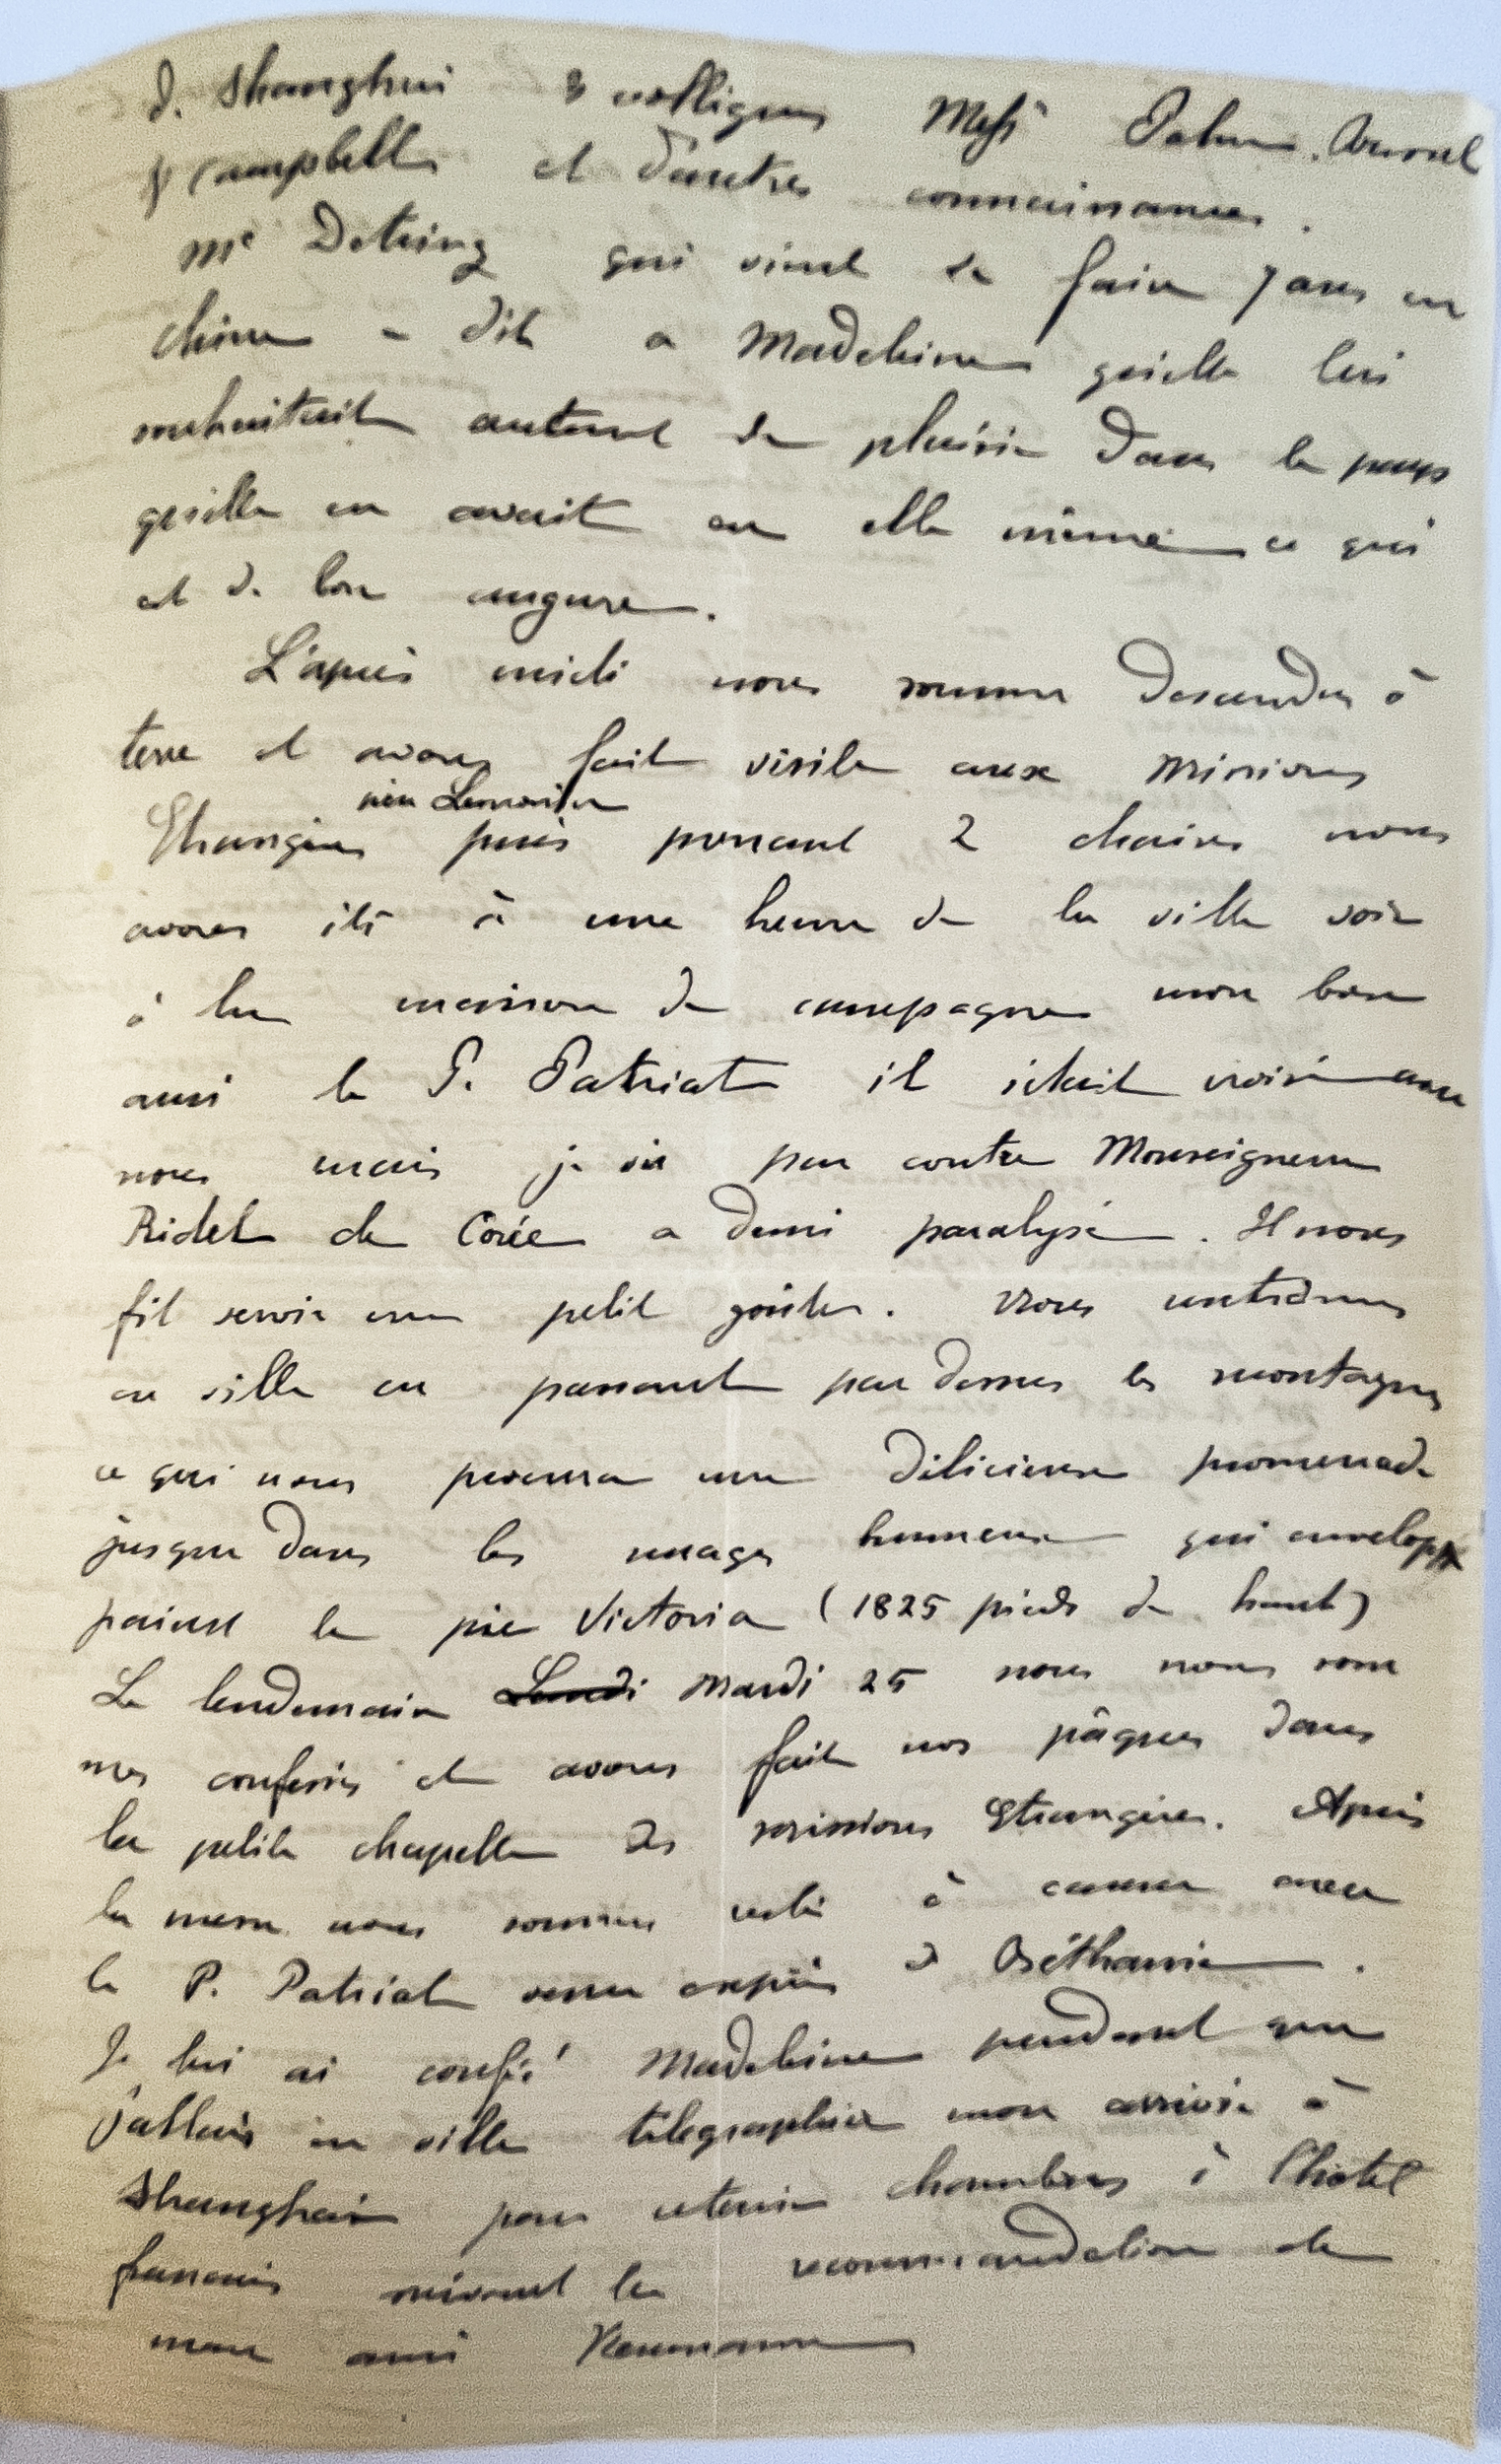 de Shanghai 3 collègues Messrs Palm
& Campbell et d'autres connaissances.
Mr Detring qui vient de faire 7 ans en
chine a dit a Madeleine qu'elle lui
souhaitait autant de plaisir dans le pays
qu'elle en avait eu elle même ce qui
est de bon augure.
L'après midi nous sommes descendus à
terre et avons fait visite aux Missions
Etrangères puis prenant 2 chaises nous
avons été à une heure de la ville voir
à la maison de campagne mon bon
ami le P. Patriat il était avec
nous mais je vis par contre Monseigneur
Ridel de Corée a demi paralysé. Il nous
fit servir un petit goûter. Nous rentrâmes
en ville en passant par dessus les montagnes
ce qui nous procura une délicieuse promenade
jusque dans les nuages qui envelop
paient le pic Victoria (1825 pieds de haut)
Le lendemain Lundi Mardi 25 nous nous som
mes confessés et avons fait nos pâques dans
la petite chapelle des missions Etrangères. Après
la messe nous sommes resté à causer avec
le P. Patriat venu exprès de Béthanie.
Je lui ai confié Madeleine pendant que
j'allais en ville télégraphier mon arrivée à
Shanghai pour retenir chambres à l'hotel
francais suivant la recommandation de
mon ami Neumann